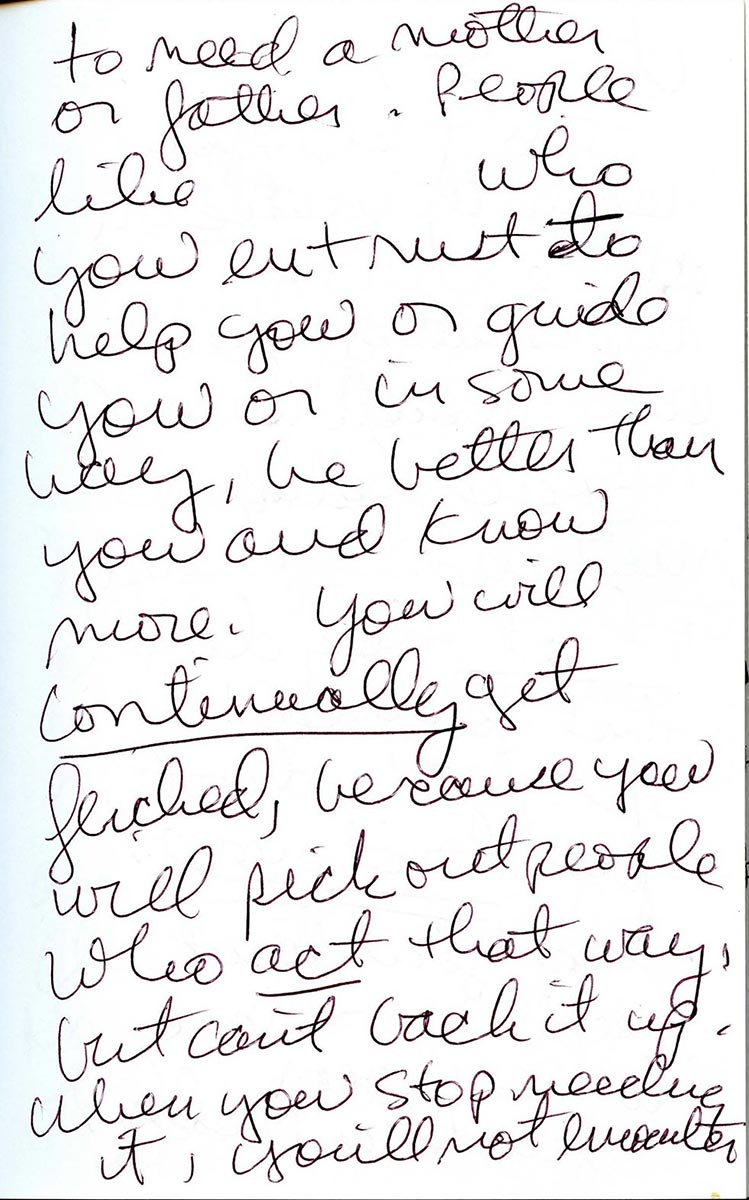 to need a mother
or father. People
like who
you entrust to
help you or guide
you or in some
way, be better than
you and know
more. You will
continually get
fucked, because you
will pick out people
who act that way,
but can't back it up.
When you stop needing
it, you'll not encounter